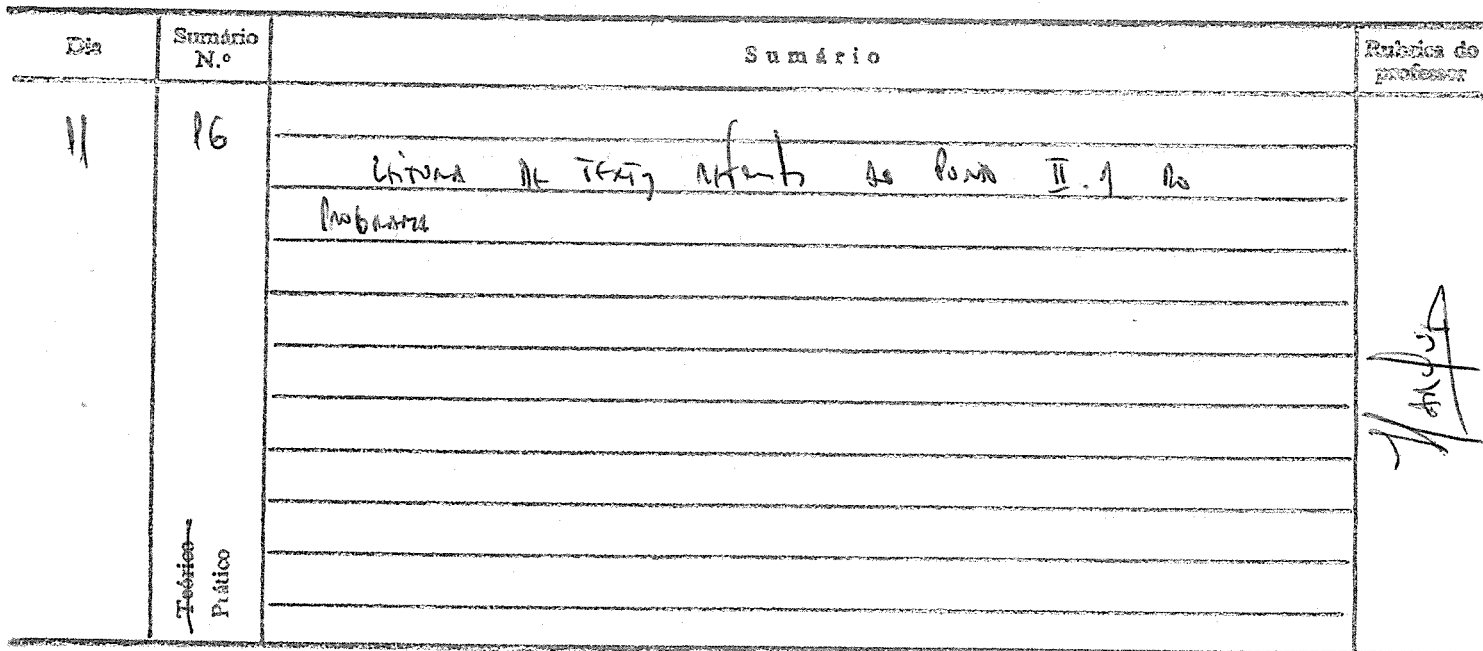 Dia
Sumário N.º
Sumário
Rubrica do professor
11
16
Leitura de Texto referente ao Ponto II.1 do
Programa
Teórico
Prático